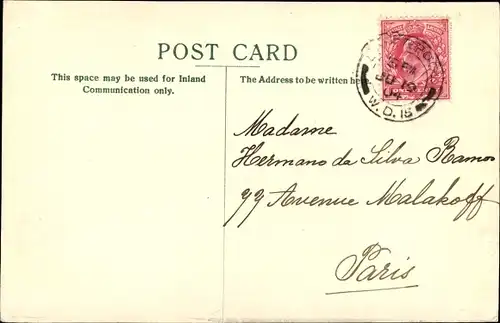 POST CARD
This space may be used for Inland
Communication only.
The Address to be written he
W.D. 18
Madame
Hermano da Silva Ramos
77 Avenue Malakoff
Paris